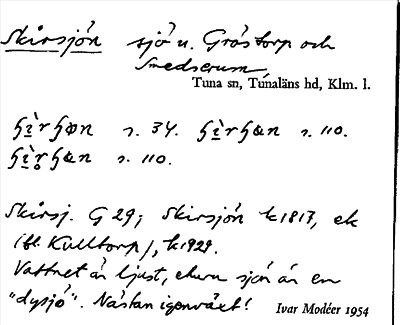 Skirsjön sjö n. Gröstorp och
Smedserum
Tuna sn, Tunaläns hd, Klm. l.
s. 34. s. 110.
s. 110.
Skirsj. G 29; Skirsjön k 1817, ek
(bl. Kulltorp), k 1929.
Vattnet är ljust, sjön är en
"dysjö". Nästan igenväxt!
Ivar Modéer 1954